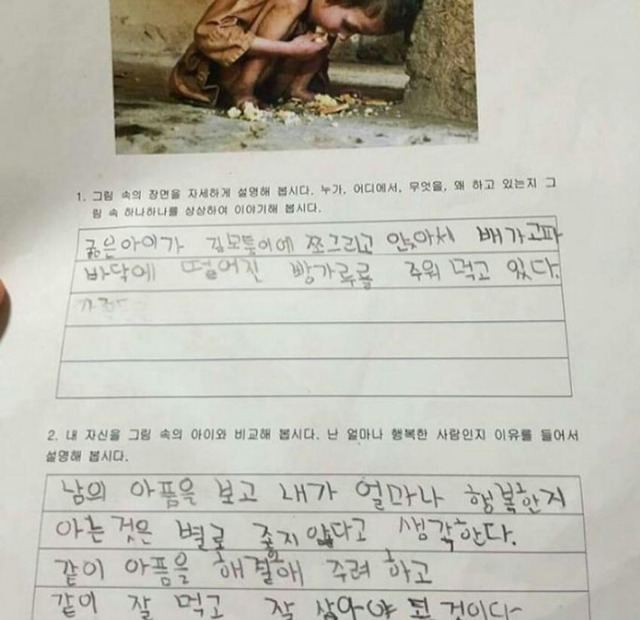 1. 그림 속의 장면을 자세하게 설명해 봅시다. 누가, 어디에서, 무엇을, 왜 하고 있는지 그
림 속 하나하나를 상상하여 이야기해 봅시다.
굶은아이가 길모퉁이에 쪼그리고 앉아서 배가고파
바닥에 떨어진 빵가루를 주워 먹고 있다.
2. 내 자신을 그림 속의 아이와 비교해 봅시다. 난 얼마나 행복한 사람인지 이유를 들어서
설명해 봅시다.
남의 아픔을 보고 내가 얼마나 행복한지
아는것은 별로 좋지 않다고 생각한다.
같이 아픔을 해결해 주려 하고
같이 잘 먹고 잘 살아야 된 것이다